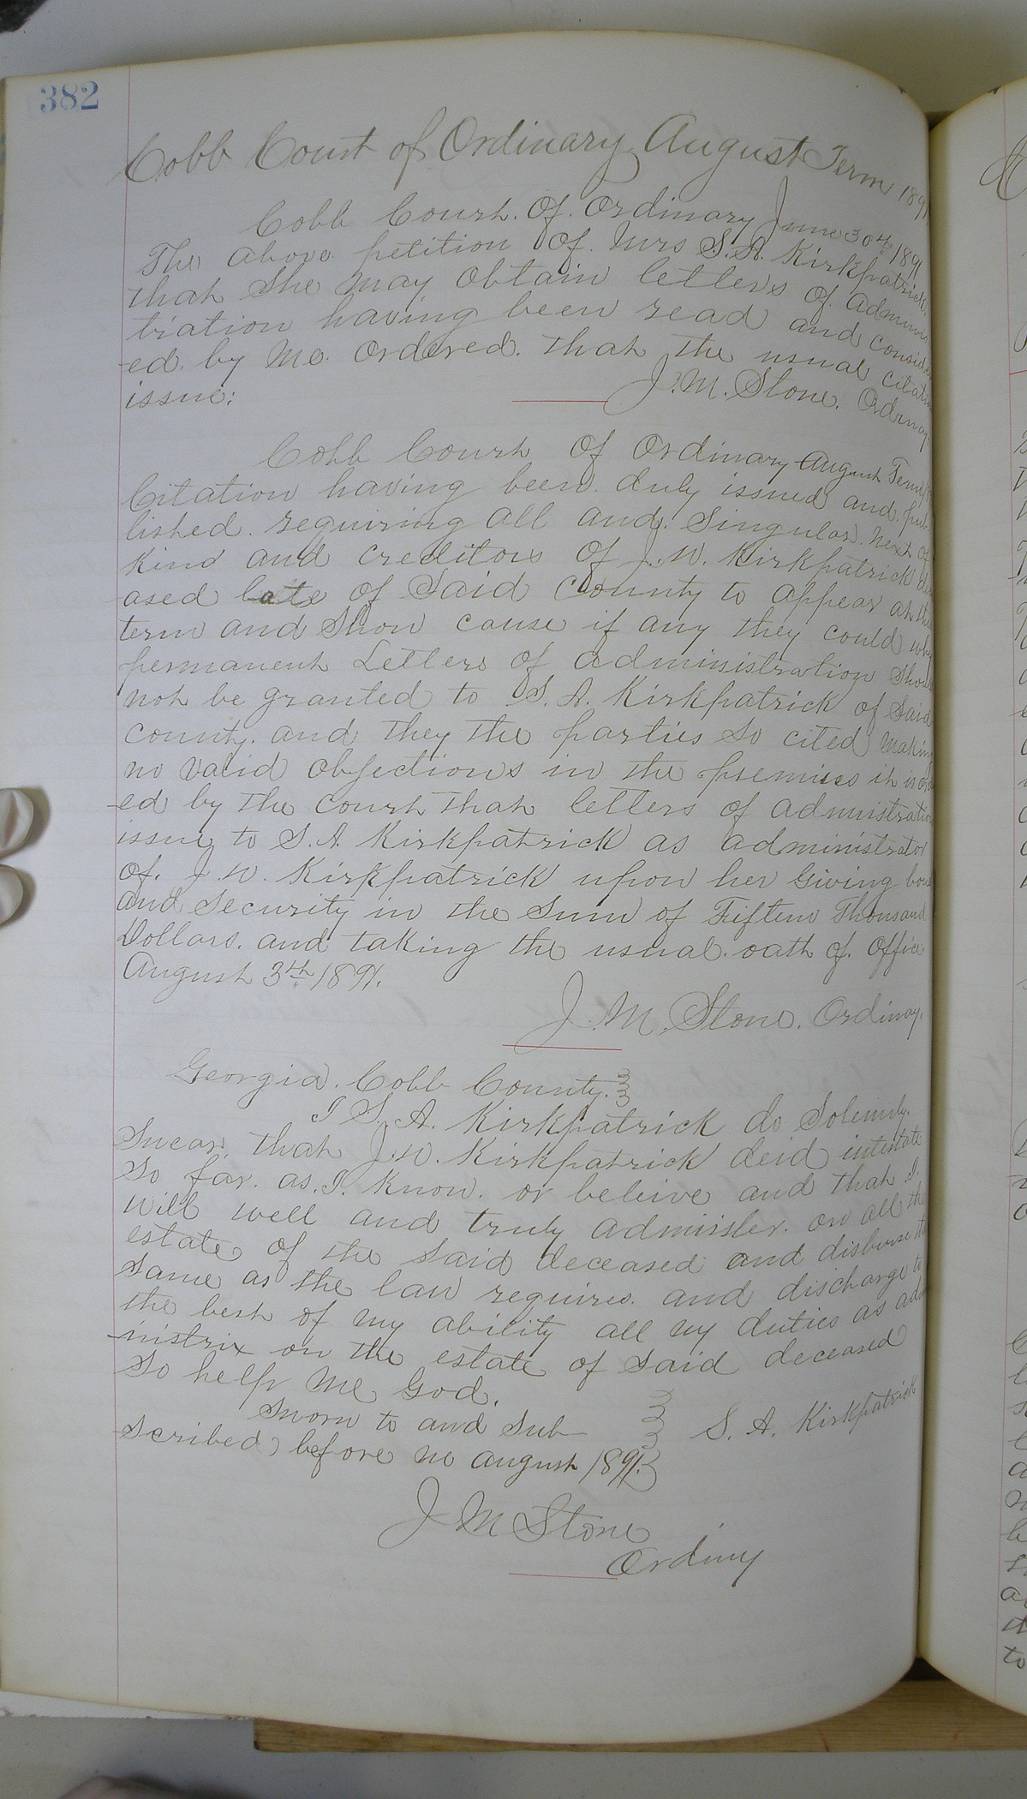 382
Cobb Court of Ordinary August Term 1891
Cobb Court. of. Ordinary June 30th 1891
The above petition of. Mrs S. A. Kirkpatrick
that She May obtain letters of adminis
tration having been read and consider
-ed. by Me. Ordered. that the usual citation
issue:
J. M. Stone. Ordinary
Cobb Court of Ordinary August Term
Citation having been. duly issued and. pub
lished. requiring all and. Singular. next of
Kind and creditors of J. W. Kirkpatrick dec
ased late of Said County to appear at the
term and Show cause if any they could why
permanent Letters of administration Shou
not be granted to S. A. Kirkpatrick of Said
county. and they the parties So cited Making
no valid objections in the premises it is ord
-ed by the Court that letters of admistration
issue to S. A. Kirkpatrick as administrator
of. J. W. Kirkpatrick upon her Giving bond
and Security in the Sum of Fiften Thousand
Dollars. and taking the usual. oath of. office
August 3th 1891.
J. M. Stone. Ordinay.
Georgia. Cobb County.
I S. A. Kirkpatrick do Solemly.
Swear. that J. W. Kirkpatrick deid intestate
So far. as. I. Know. or beleive and that I
will well and truly admisler. on all the
estate of the Said deceased and disburse the
Same as the law requires. and discharge to
the best of my ability all my duties as adm
-inistrix on the estate of Said deceased
So help Me God.
Sworn to and Sub-
S. A. Kirkpatrick
scribed before me august 1891.
J M Stone
Ordiny